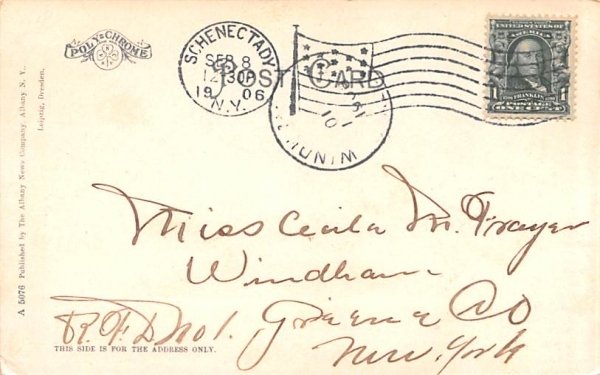 POLY-CHROME
POST CARD
SCHENECTADY
SEP 8
12-30P
1906
N.Y.
WINDHAM
10
UNITED STATES OF
AMERICA
1
POSTAGE
ONE CENT
Miss Cecila M. Frayer
Windham
R.F.D No 1. Greene Co
New. York
THIS SIDE IS FOR THE ADDRESS ONLY.
A 5076 Published by The Albany News Company, Albany N. Y.
Leipzig, Dresden.